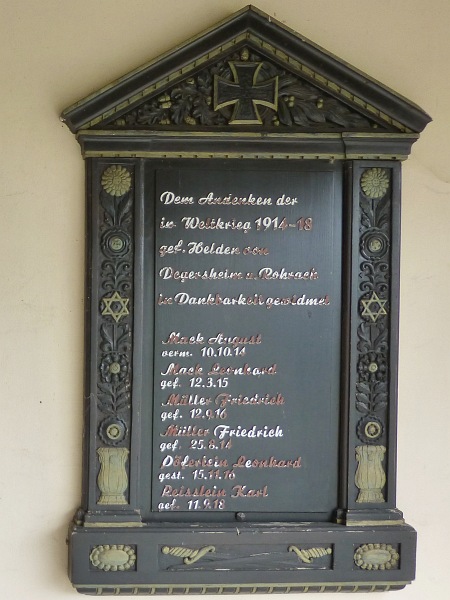 Dem Andenken der
im Weltkrieg 1914-18
gef. Helden von
Degersheim u. Rohrach
in Dankbarkeit gewidmet
Mack August
verm. 10.10.14
Mack Leonhard
gef. 12.3.15
Müller Friedrich
gef. 12.9.16
Müller Friedrich
gef. 25.8.14
Leonhard
gest. 15.11.16
Reisslein Karl
gef. 11.9.18